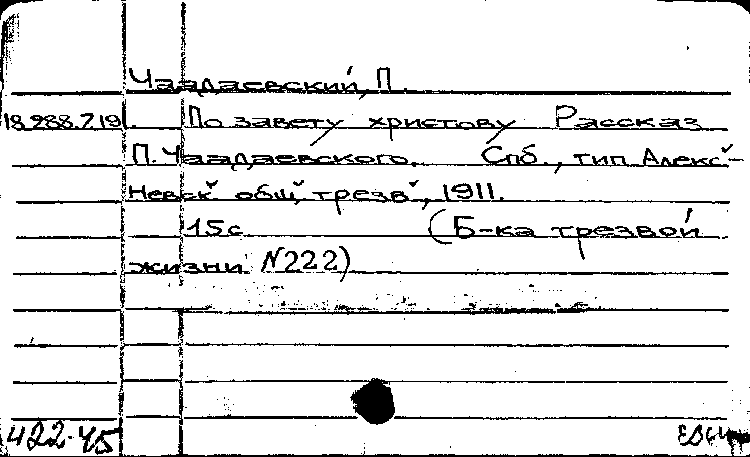 Чаадаевский, П.
18.288.719. По завету христову Рассказ
П. Чаадаевского. Спб., тип. Алекс-
Невск общ трезв, 1911.
15с (Б-ка трезвой
жизни N222)
422-45